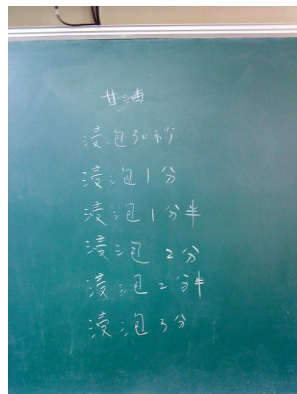 甘油
浸泡30秒
浸泡1分
浸泡1分半
浸泡2分
浸泡2分半
浸泡3分